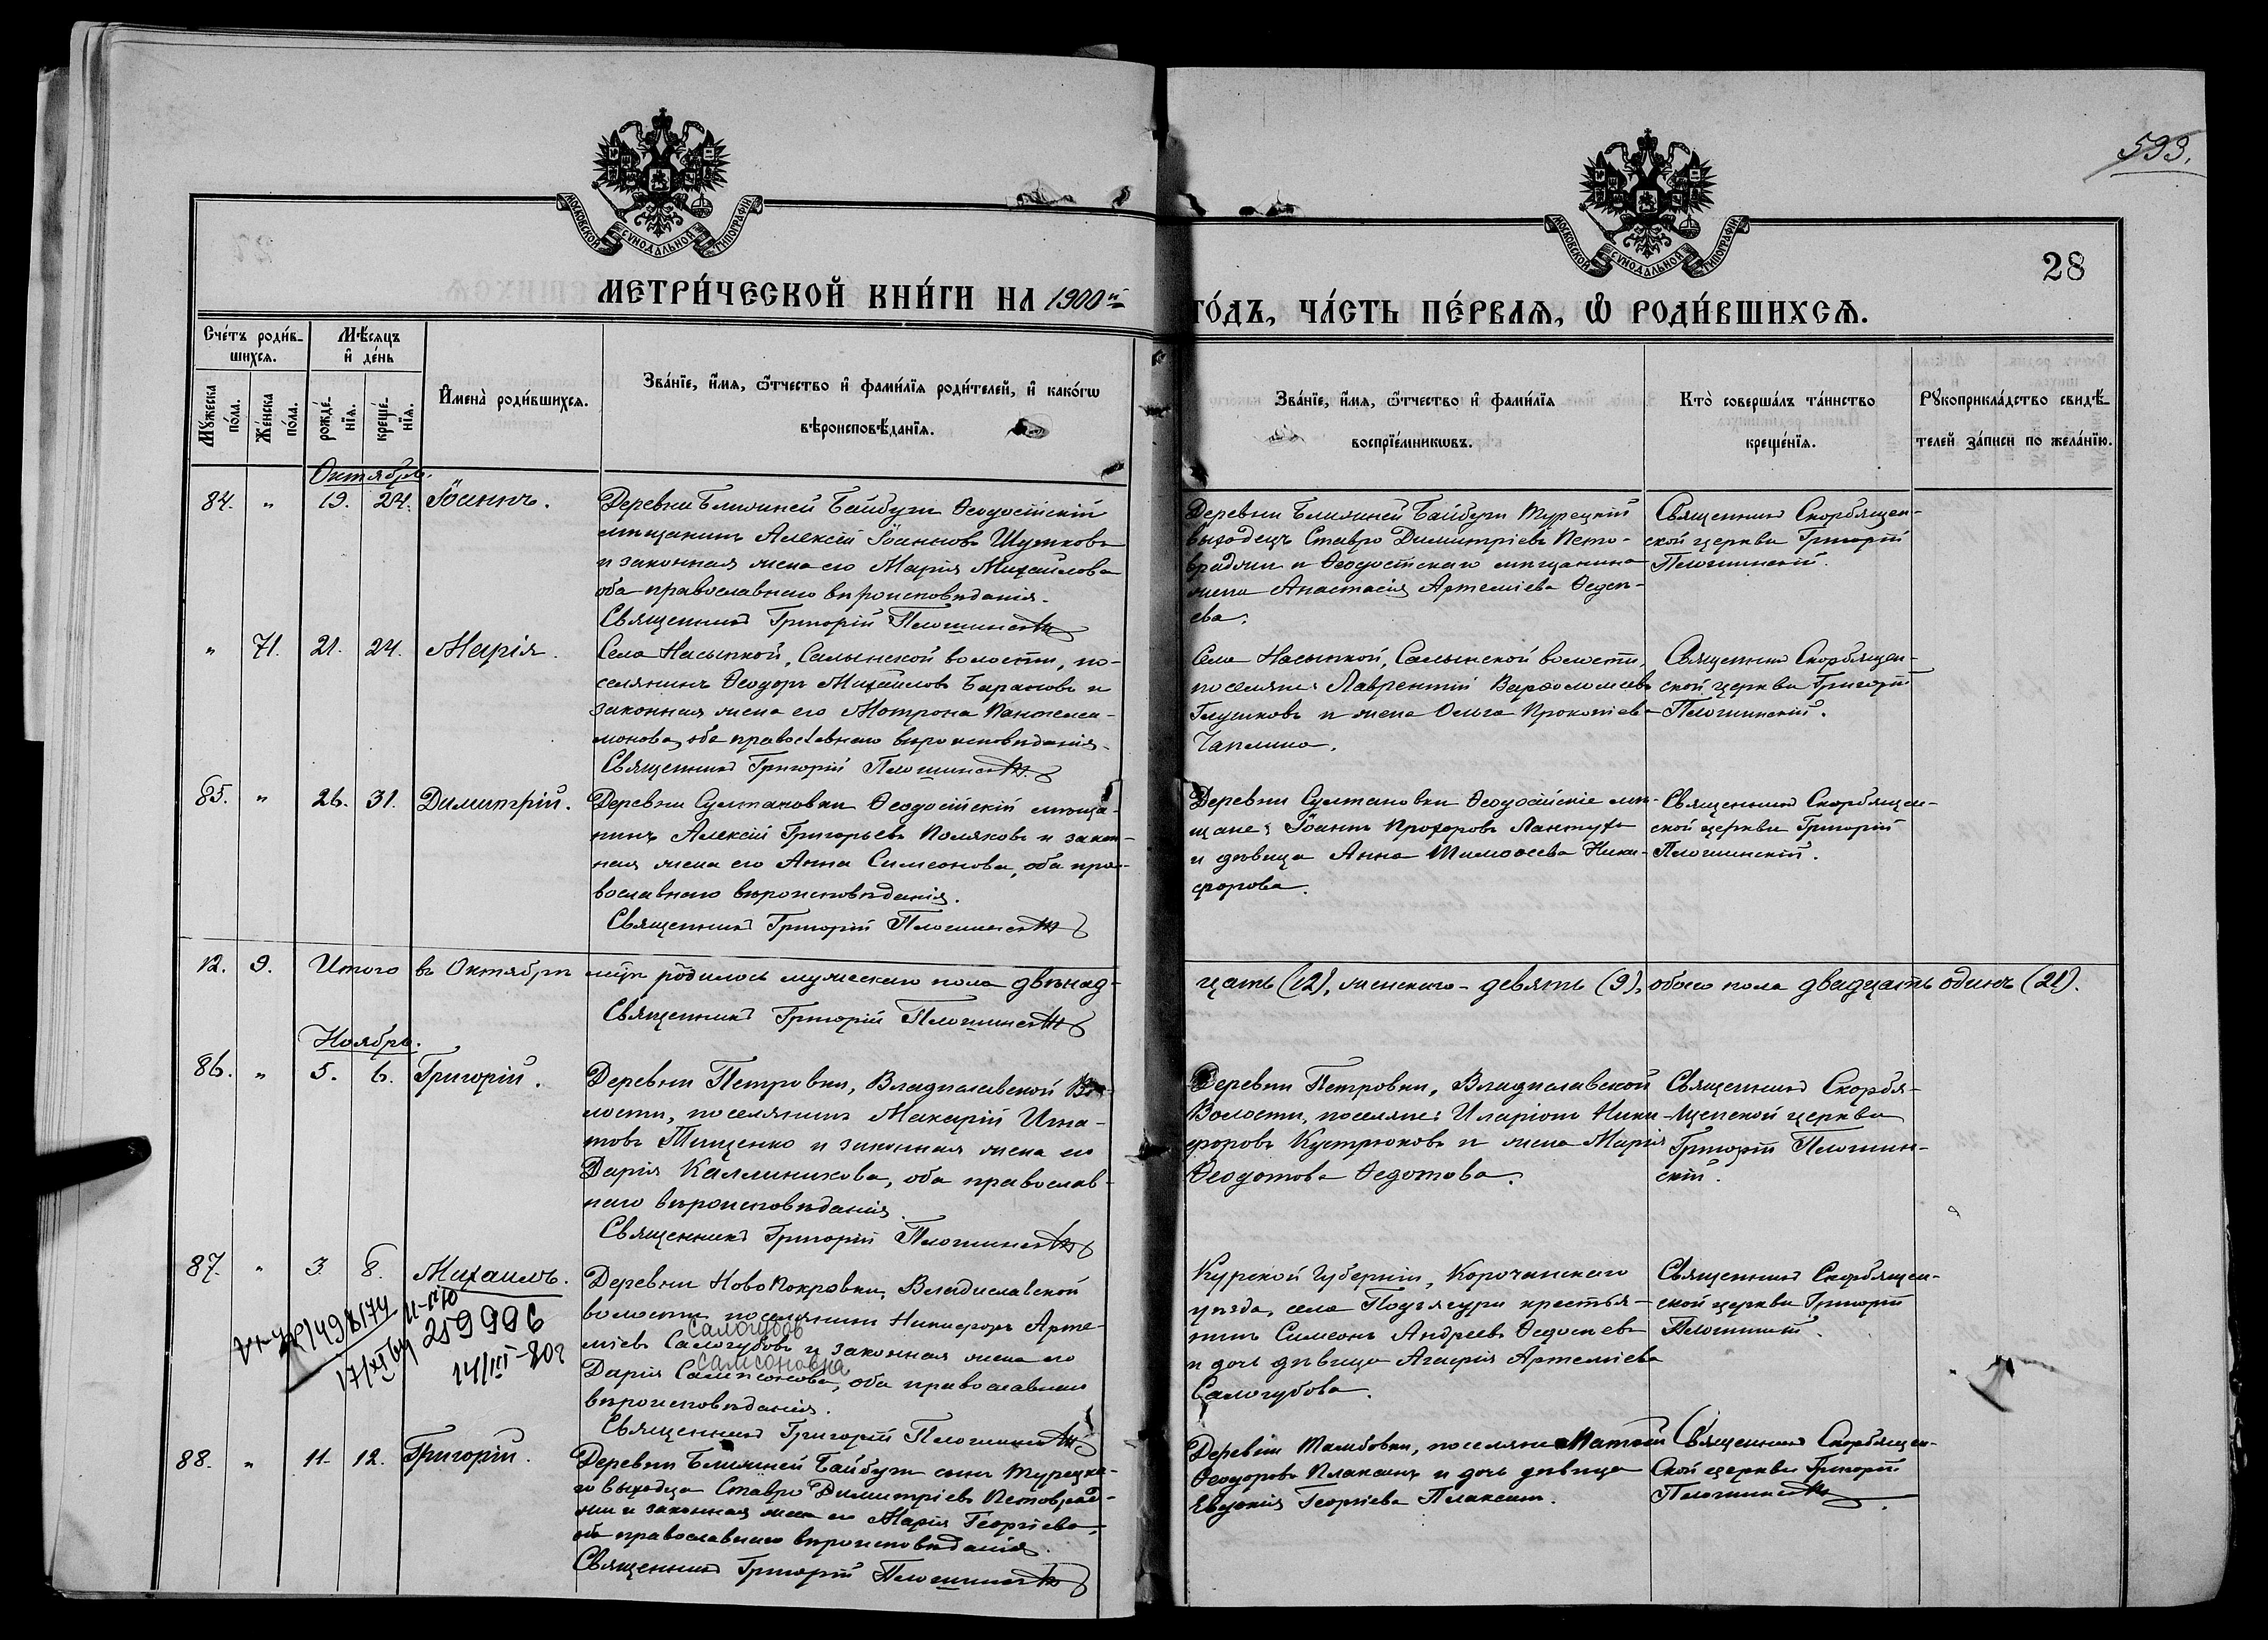 593.
МОСКОВСКОЙ СѴНОДАЛЬНОЙ ТИПОГРАФІИ
МОСКОВСКОЙ СѴНОДАЛЬНОЙ ТИПОГРАФІИ
28
МЕТРИ́ЧЕСКОЙ КНИ́ГИ НА 1900й
ГО́ДЪ, ЧА́СТЬ ПЕ́РВАѦ, Ѡ҆ РОДИ́ВШИХСѦ.
Сче́тъ роди́в-
шихсѧ.
Мꙋ́жеска
по́ла.
Же́нска
по́ла.
Мѣ́сяцъ
и҆ де́нь
рожде́-
нїѧ.
креще́-
нїѧ.
И҆мена̀ роди́вшихсѧ.
Зва́нїе, и҆́мѧ, ѻ҆́тчество и҆ фами́лїѧ роди́телей, и҆ како́гѡ
вѣроисповѣ́данїѧ.
Зва́нїе, и҆́мѧ, ѻ҆́тчество и҆ фами́лїѧ
воспрїе́мникѡвъ.
Кто̀ соверша́лъ та́инство
креще́нїѧ.
Рꙋкоприкла́дство свидѣ́-
телей за́писи по жела́нїю.
Октябрь.
84. " 19. 24. Іоаннъ.
Деревни Ближней Байбуги Ѳеодосійскій
мѣщанинъ Алексій Іоанновъ Шутковъ
и законная жена его Марія Михаилова
оба православнаго вѣроисповѣданія.
Священникъ Григорій
Деревни Ближней Байбуги Турецкій
выходецъ Ставро Димитріевъ Пето-
вради и Ѳеодосійскаго мѣщанина
жена Анастасія Артеміева
ева.
Священникъ Скорбящен-
ской церкви Григорій
" 71. 21. 24. Марія.
Села Насыпкой, Салынской волости, по-
селянинъ Ѳеодоръ Михаиловъ Барановъ и
законная жена его Мотрона Пантелеи-
монова, оба православнаго вѣроисповѣданія.
Священникъ Григорій
Села Насыпкой, Салынской волости,
поселяне: Лаврентій Варѳоломеевъ
Глушковъ и жена Ольга Прокопіева
Чаплина.
Священникъ Скорбящен-
ской церкви Григорій
85. " 26. 31. Димитрій.
Деревни Султановки Ѳеодосійскій мѣща-
нинъ Алексій Григорьевъ Поляковъ и закон-
ная жена его Анна Симеонова, оба пра-
вославнаго вѣроисповѣданія.
Священникъ Григорій
Деревни Султановки Ѳеодосійскіе мѣ-
щане: Іоаннъ Прохоровъ Лантухъ
и дѣвица Анна Тимоѳеева Ники-
форова.
Священникъ Скорбящен-
ской церкви Григорій
12. 9. Итого въ Октябрѣ м-цѣ родилось мужескаго пола двѣнад-
цать (12), женскаго - девять (9), обоего пола двадцать одинъ (21).
Священникъ Григорій
Ноябрь.
86. " 5. 6. Григорій.
Деревни Петровки, Владиславской Во-
лости, поселянинъ Макарій Игна-
товъ Тищенко и законная жена его
Дарія Каллиникова, оба православ-
наго вѣроисповѣданія.
Священникъ Григорій
Деревни Петровки, Владиславской
Волости, поселяне: Иларіонъ Ники-
форовъ Кустрюковъ и жена Марія
Ѳеодотова Ѳедотова.
Священникъ Скорбя-
щенской церкви
Григорій
скій.
87. " 3. 8. Михаилъ.
259996
14/III-80г
Деревни Новопокровки, Владиславской
волости поселянинъ Никифоръ Арте-
Самогубов
міевъ Самогубовъ и законная жена его
Самсоновна
Дарія Сампсонова, оба православнаго
вѣроисповѣданія.
Священникъ Григорій
Курской губерніи, Корочанскаго
уѣзда, села Подъяруги крестья-
нинъ Симеонъ Андреевъ
и дочь дѣвица Агафія Артеміева
Самогубова.
Священникъ Скорбящен-
ской церкви Григорій
88. " 11. 12. Григорій.
Деревни Ближней Байбуги сынъ Турецка-
го выходца Ставро Димитріевъ Петовради-
и законная жена его Марія Георгіева,
оба православнаго вѣроисповѣданія.
Священникъ Григорій
Деревни Тамбовки, поселяне
Ѳеодоровъ Плаксинъ и дочь дѣвица
Евдокія Георгіева Плаксинъ.
Священникъ Скорбящен-
ской церкви Григорій